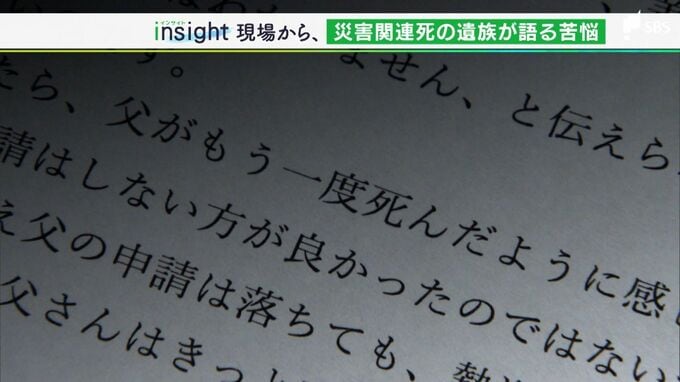 インサイト
insight 現場から、 災害関連死の遺族が語る苦悩
SBS
ません、と伝えら
たら、父がもう一度死んだように感
請はしない方が良かったのではない
え父の申請は落ちても、
父さんはきっ